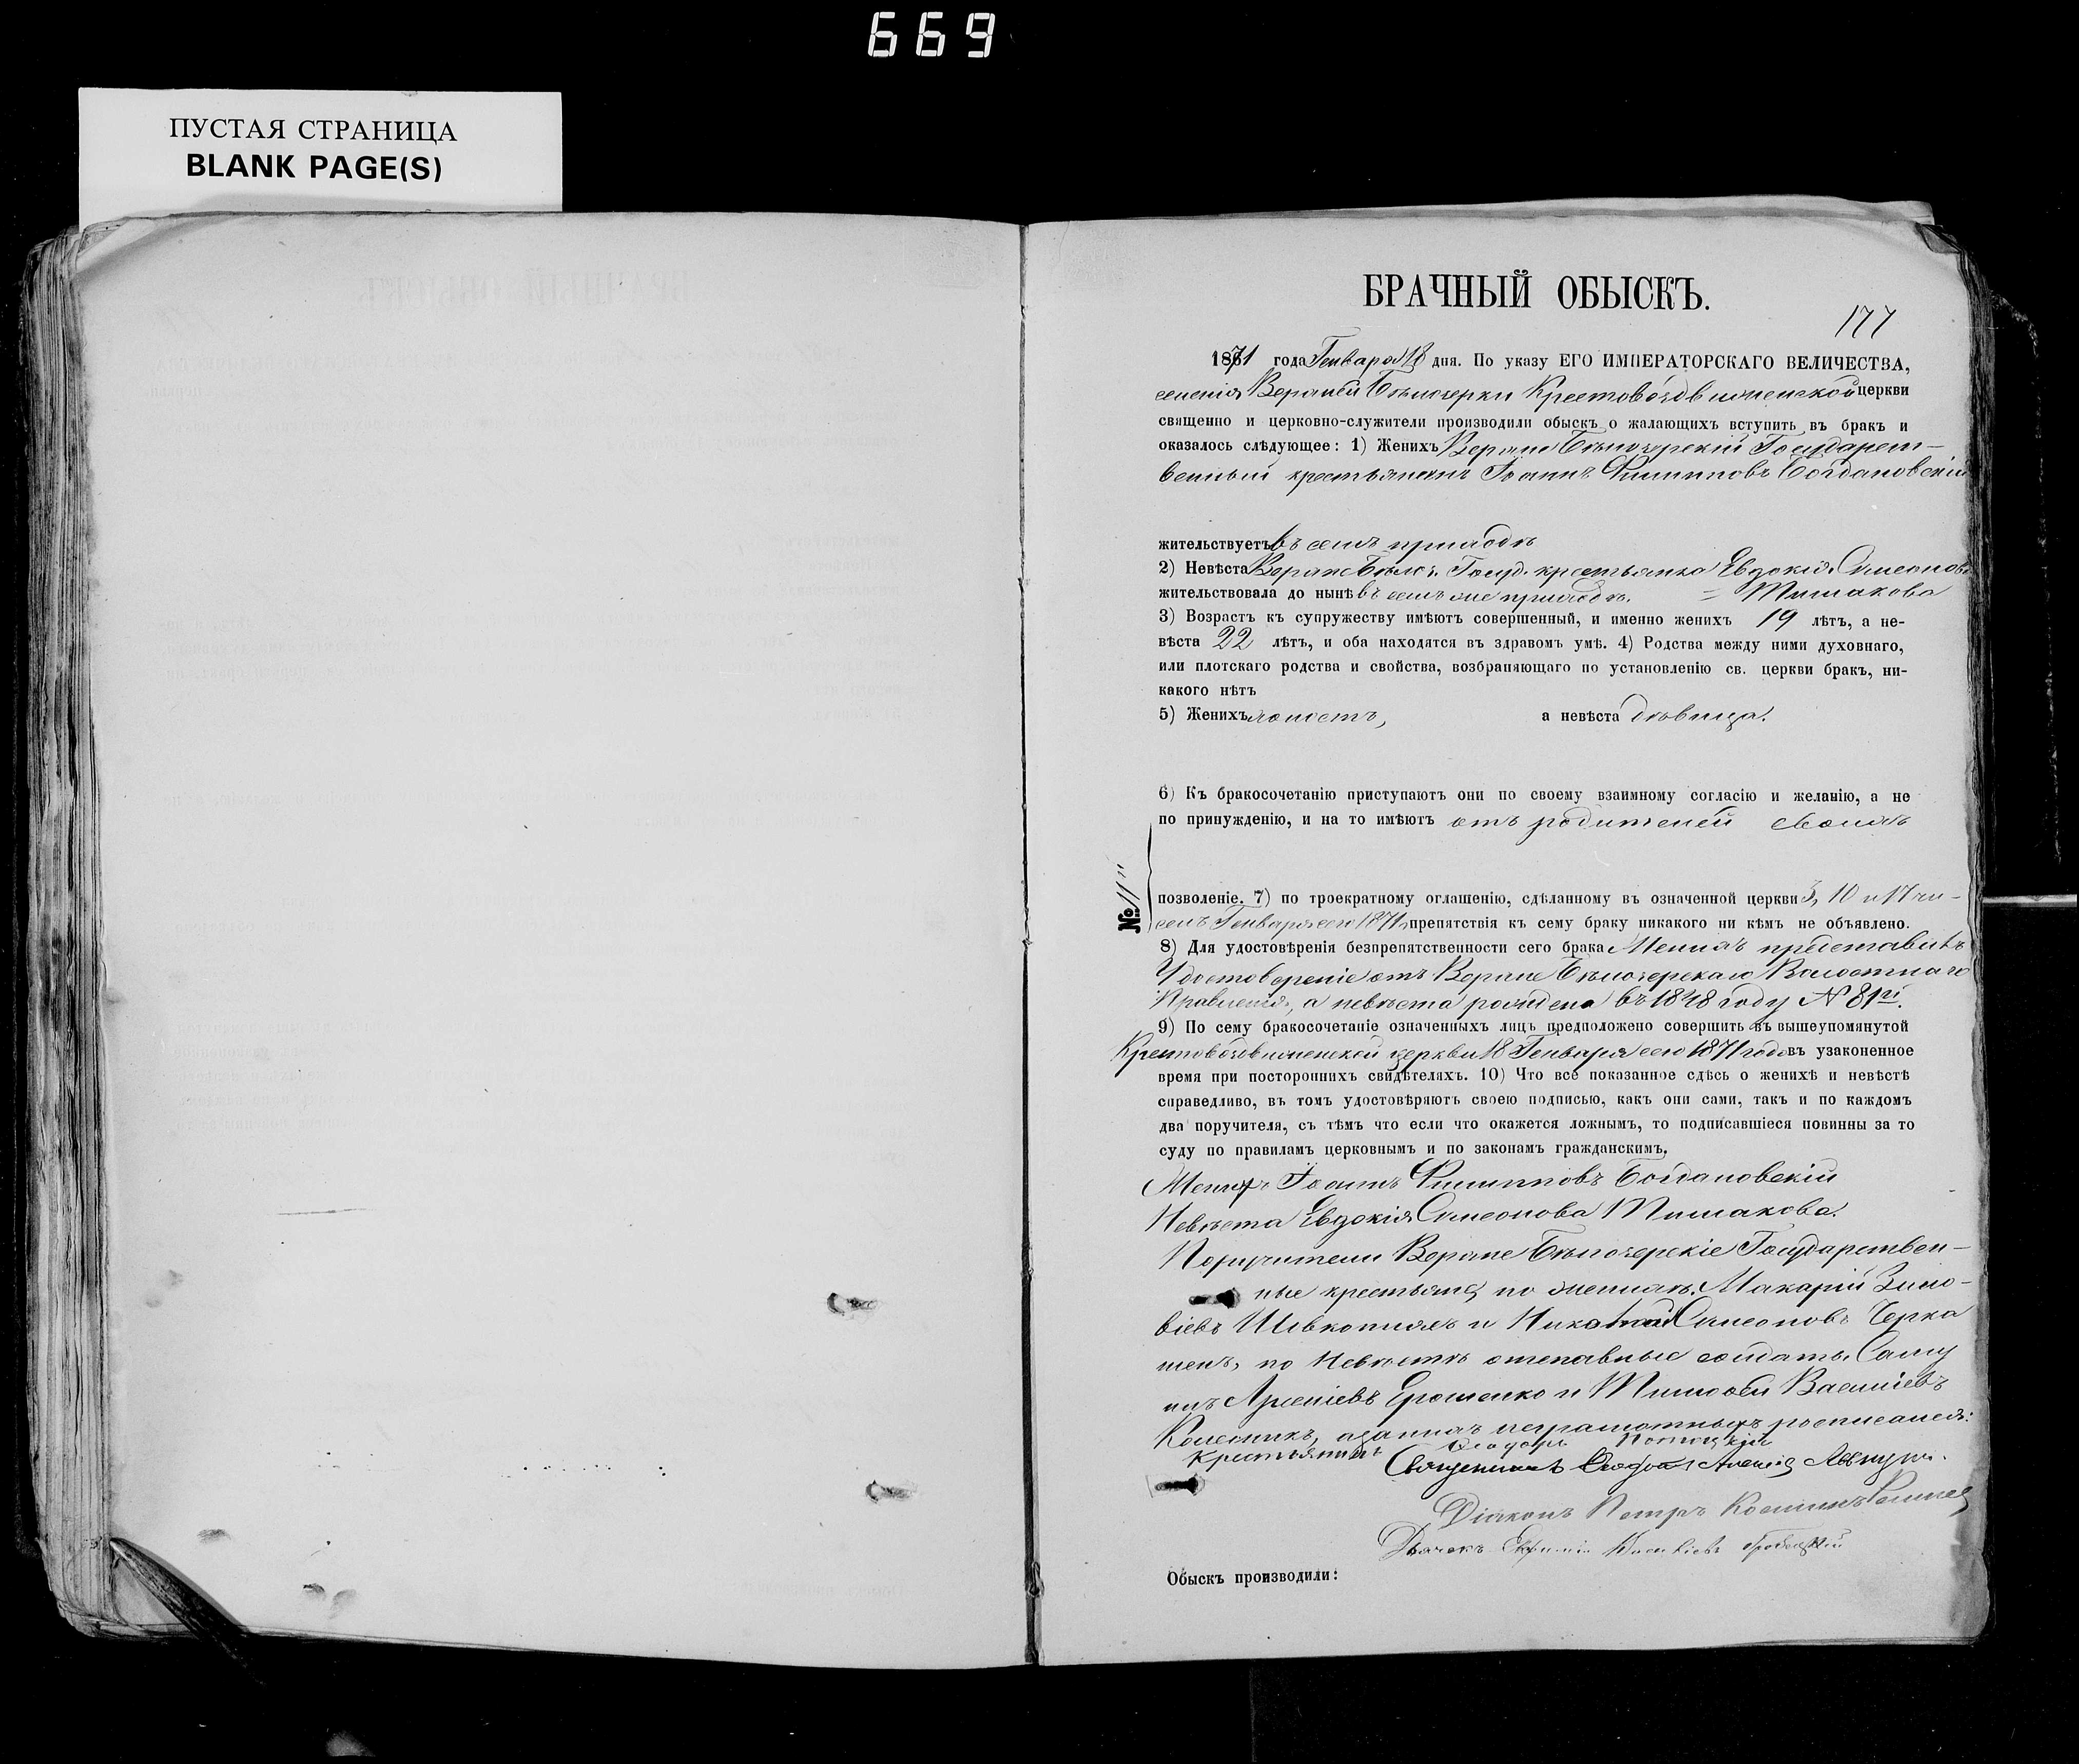 669
ПУСТАЯ СТРАНИЦА
BLANK PAGE(S)
БРАЧНЫЙ ОБЫСКЪ.
177
1871 года Генваря 18 дня. По указу ЕГО ИМПЕРАТОРСКАГО ВЕЛИЧЕСТВА,
селенія Верхней Бѣлозерки Крестовоздвиженской церкви
священно и церковно-служители производили обыскъ о жалающихъ вступить въ бракъ и
оказалось слѣдующее: 1) Женихъ Верхне Бѣлозерскій Государст-
венный крестьянинъ Іоаннъ Филипповъ Богдановскій
жительствуетъ въ семъ приходѣ
2) Невѣста Верхне Бѣлоз. Госуд. крестьянка Евдокія Симеонова
жительствовала до нынѣ въ семъ же приходѣ. = Тишакова
3) Возрастъ къ супружеству имѣютъ совершенный, и именно женихъ 19 лѣтъ, а не-
вѣста 22 лѣтъ, и оба находятся въ здравомъ умѣ. 4) Родства между ними духовнаго,
или плотскаго родства и свойства, возбраняющаго по установленію св. церкви бракъ, ни-
какого нѣтъ
5) Женихъ холостъ, а невѣста дѣвица.
6) Къ бракосочетанію приступаютъ они по своему взаимному согласію и желанію, а не
по принужденію, и на то имѣютъ отъ родителей своихъ
№ 11
позволеніе. 7) по троекратному оглашенію, сдѣланному въ означенной церкви 3, 10 и 17 чи-
селъ Генваря сего 1871 г. препятствія къ сему браку никакого ни кѣмъ не объявлено.
8) Для удостовѣренія безпрепятственности сего брака Женихъ представилъ
Удостовереніе отъ Верхне Бѣлозерскаго Волостнаго
Правленія, а невѣста рождена въ 1848 году № 81й.
9) По сему бракосочетаніе означенныхъ лицъ предположено совершить въ вышеупомянутой
Крестовоздвиженской церкви 18 Генваря сего 1871 года въ узаконенное
время при постороннихъ свидѣтеляхъ. 10) Что все показанное сдѣсь о женихѣ и невѣстѣ
справедливо, въ томъ удостовѣряютъ своею подписью, какъ они сами, такъ и по каждомъ
два поручителя, съ тѣмъ что если что окажется ложнымъ, то подписавшіеся повинны за то
суду по правиламъ церковнымъ и по законамъ гражданскимъ,
Женихъ Іоаннъ Филипповъ Богдановскій
Невѣста Евдокія Симеонова Тишакова.
Поручители Верхне Бѣлозерскіе Государствен-
ные крестьяне, по женихѣ: Макарій Зино-
віевъ Шевкопляъ и Николай Симеоновъ Черка
шенъ, по Невѣстѣ отставные солдаты Саму
илъ Арсеніевъ Ерошенко и Тимофей Васильевъ
Колесникъ, а за нихъ неграмотныхъ росписался:
Крестьянинъ Феодоръ
Священникъ Алексій
Діаконъ Петръ Косминъ
Дьячокъ
Обыскъ производили: